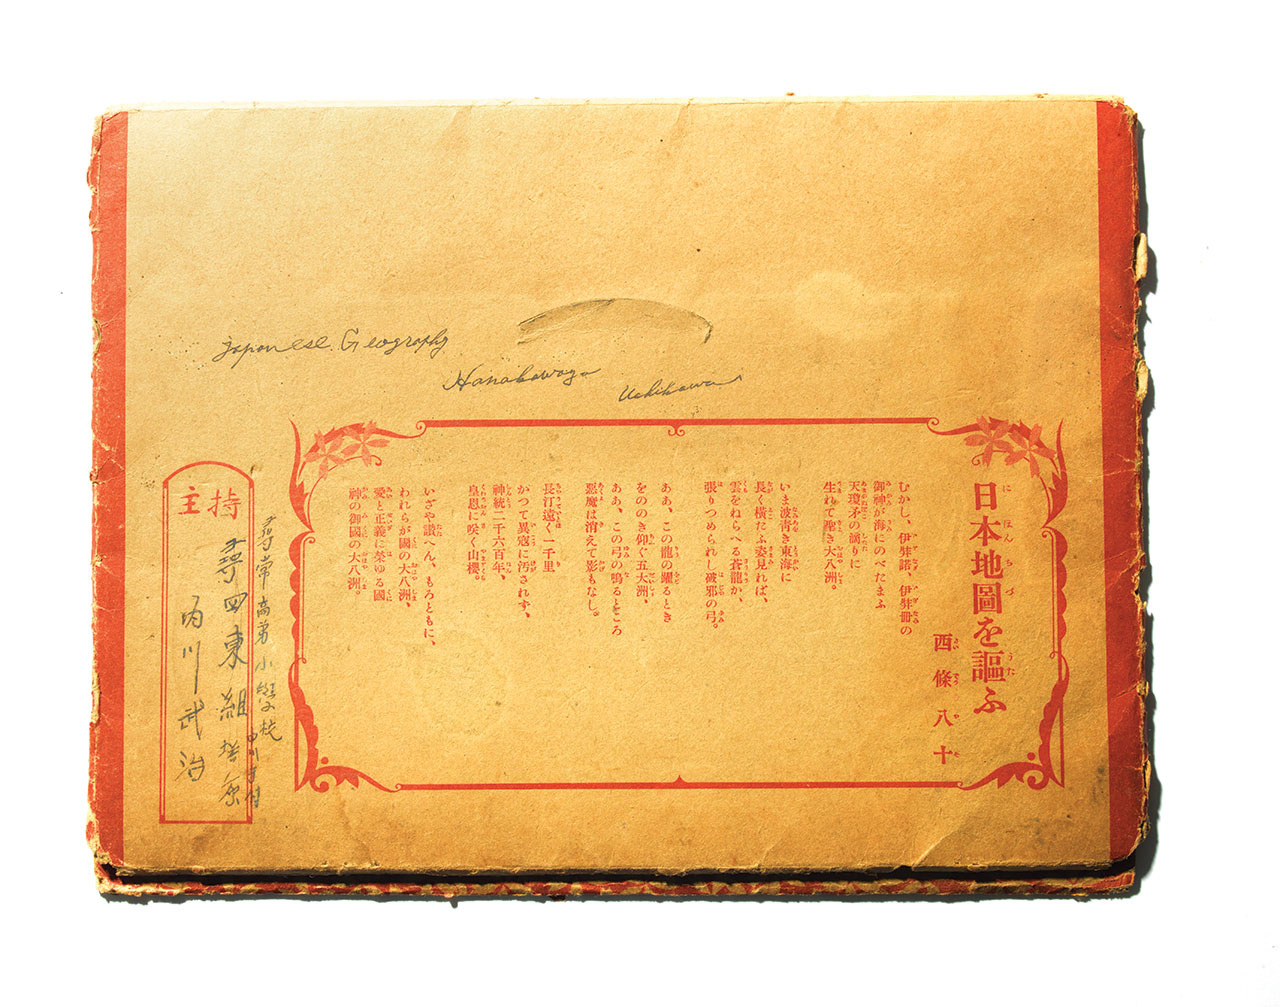 Japanese. Geography
Hanakawago
Uchikawa
日本地圖を謳ふ
西條八十
むかし、伊弉諾、伊弉冊の
御神が海にのべたまふ
天瓊矛の滴りに
生れて尊き大八洲。
いま波靑き東海に
長く橫たふ姿見れば、
雲をねらへる蒼龍か、
張りつめられし破邪の弓。
ああ、この龍の躍るとき
をののき仰ぐ五大洲、
ああ、この弓の鳴るところ
惡魔は消えて影もなし。
長汀遠く一千里
かつて異寇に汚されず、
神統二千六百年、
皇恩に咲く山櫻。
いざや讃へん、もろともに、
われらが國の大八洲、
愛と正義に榮ゆる國
神の御國の大八洲。
尋常高等小學校
主持
尋四東組
內川武治